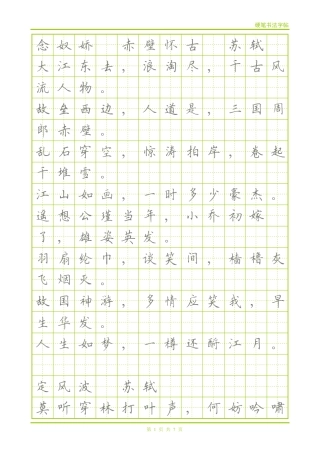 硬笔书法字帖
念奴娇 赤壁怀古 苏轼
大江东去，浪淘尽，千古风
流人物。
故垒西边，人道是，三国周
郎赤壁。
乱石穿空，惊涛拍岸，卷起
千堆雪。
江山如画，一时多少豪杰。
遥想公瑾当年，小乔初嫁
了，雄姿英发。
羽扇纶巾，谈笑间，樯橹灰
飞烟灭。
故国神游，多情应笑我，早
生华发。
人生如梦，一樽还酹江月。
定风波 苏轼
莫听穿林打叶声，何妨吟啸